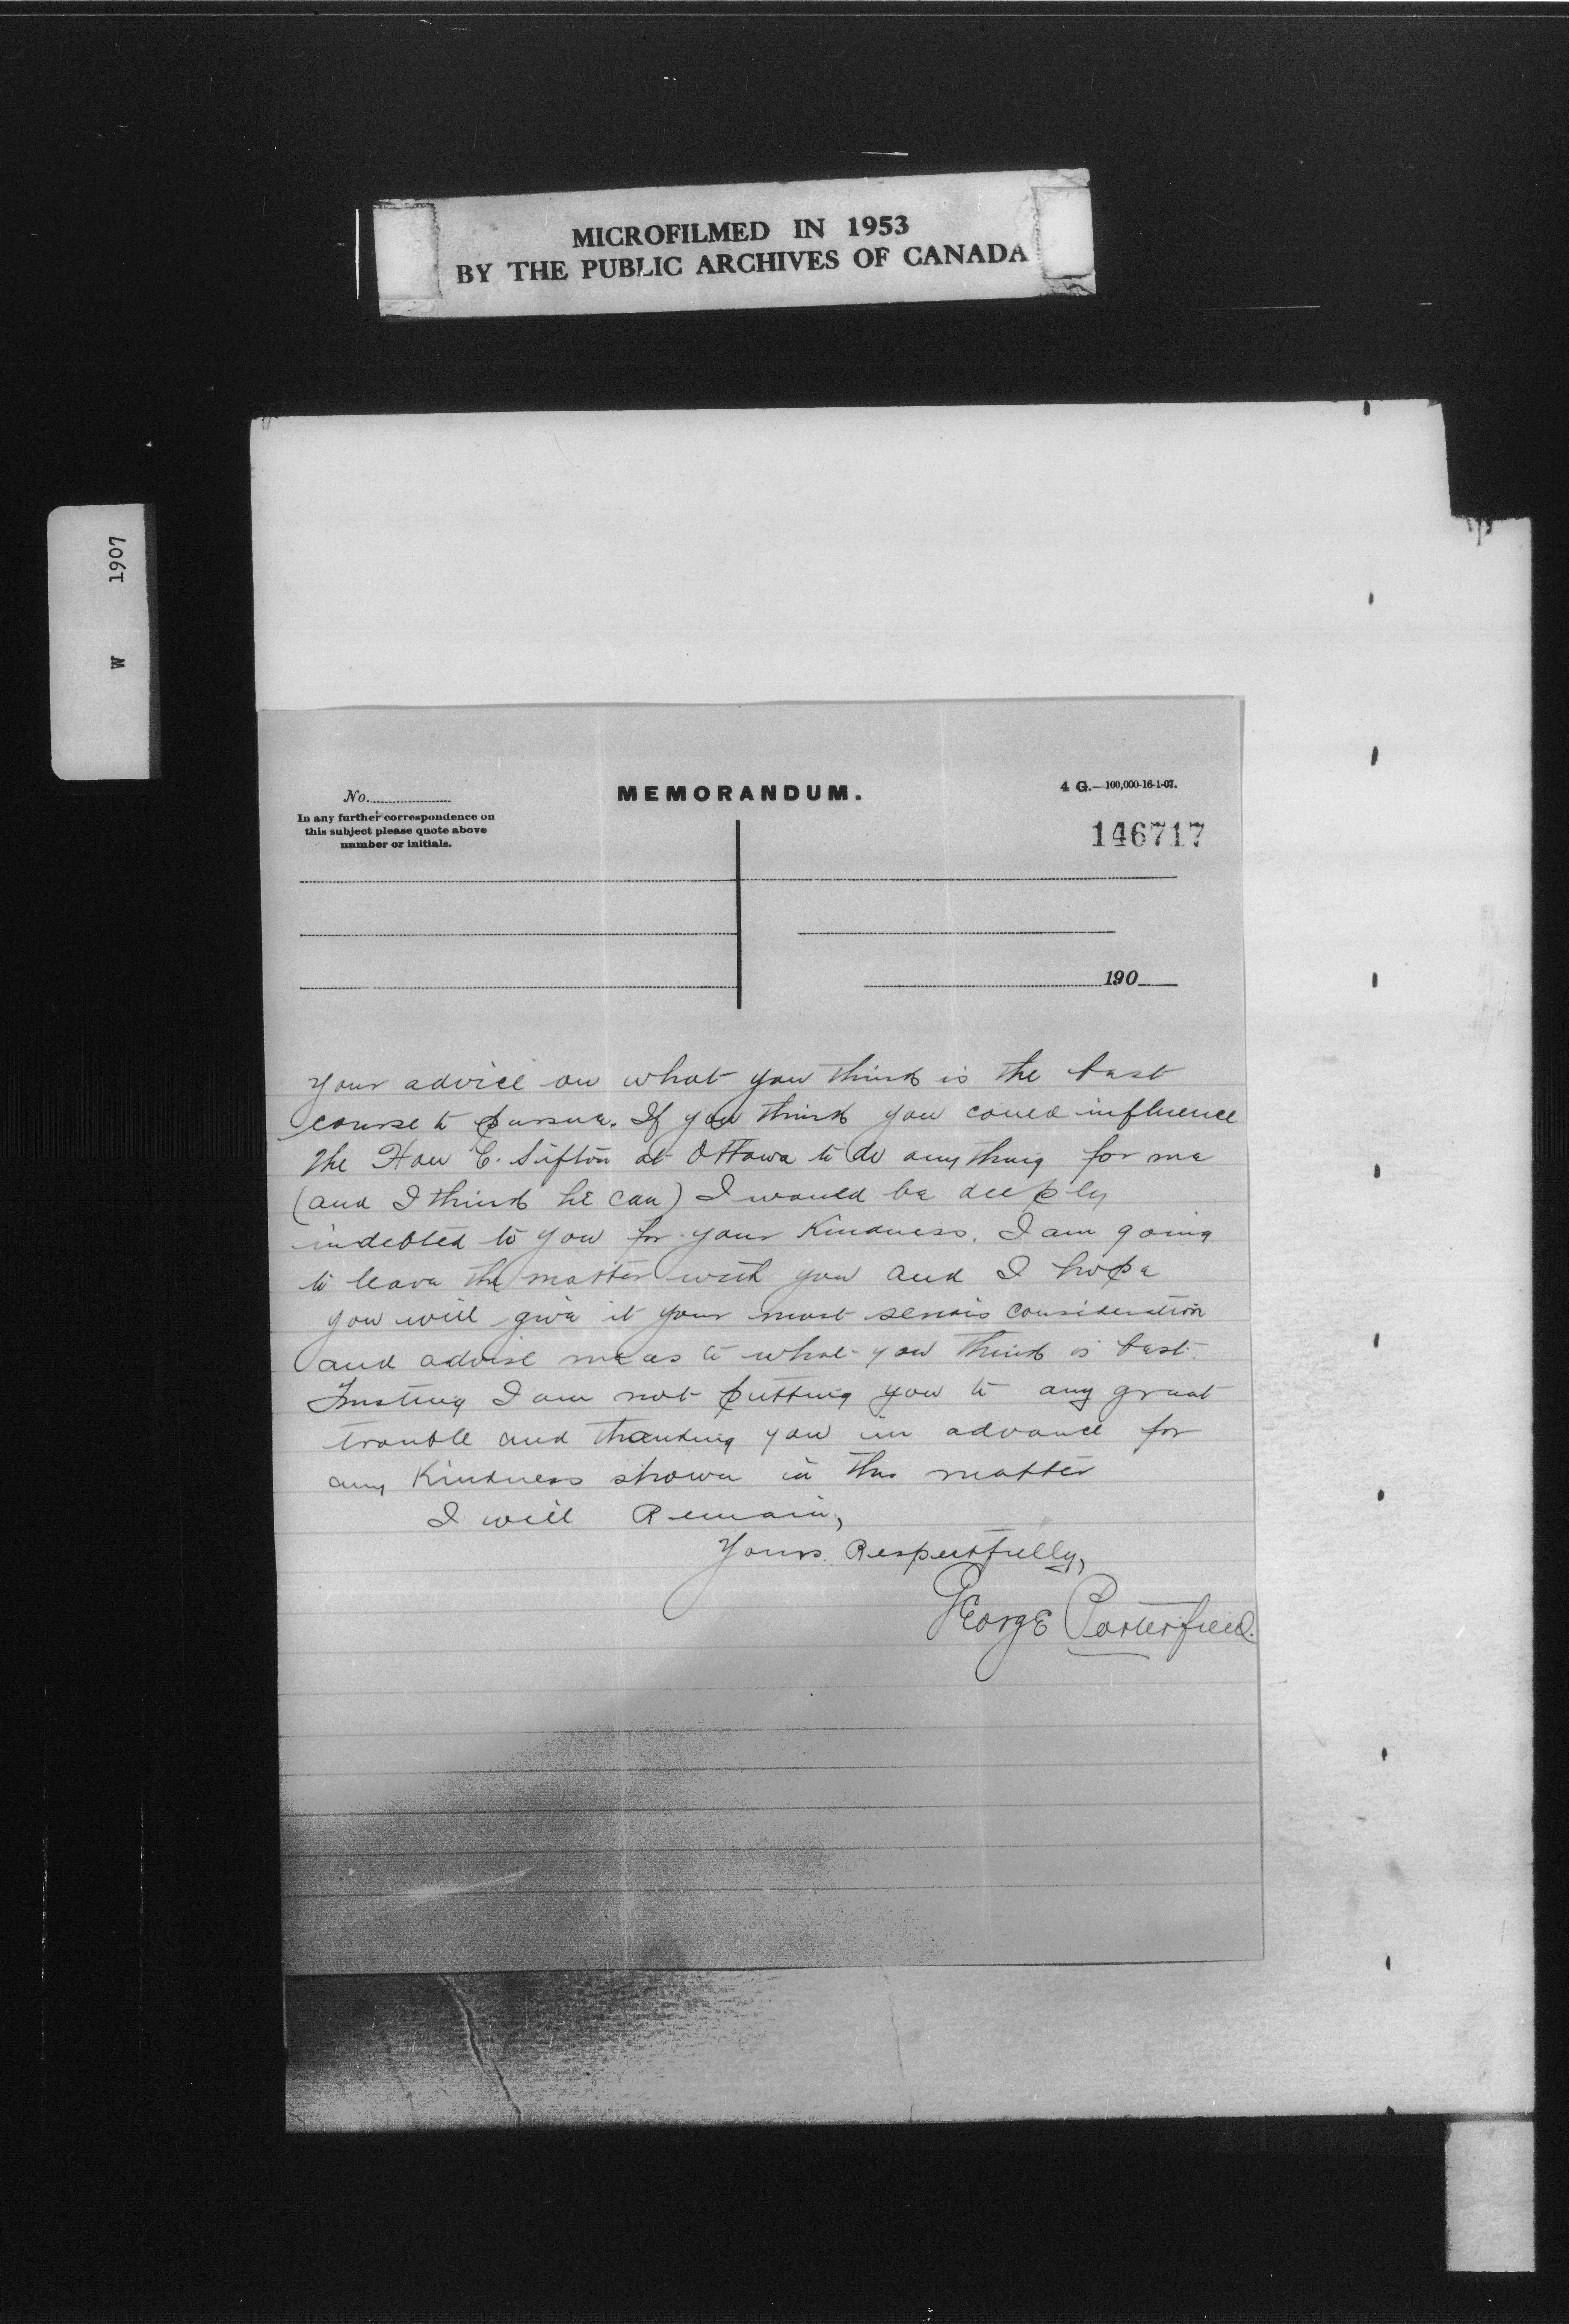 MICROFILMED IN 1953
BY THE PUBLIC ARCHIVES OF CANADA
W 1907
No.
MEMORANDUM.
4 G.—100,000-16-1-07.
In any further correspondence on
this subject please quote above
number or initials.
146717
190
your advice on what you think is the best
course to pursue. If you think you could influence
the Hon C. Sifton at Ottawa to do any thing for me
(and I think he can) I would be deeply
indebted to you for your kindness. I am going
to leave the matter with you and I hope
you will give it your most serious consideration
and advise me as to what you think is best.
Trusting I am not putting you to any great
trouble and thanking you in advance for
any kindness shown in this matter
I will Remain,
Yours Respectfully,
George Porterfield.